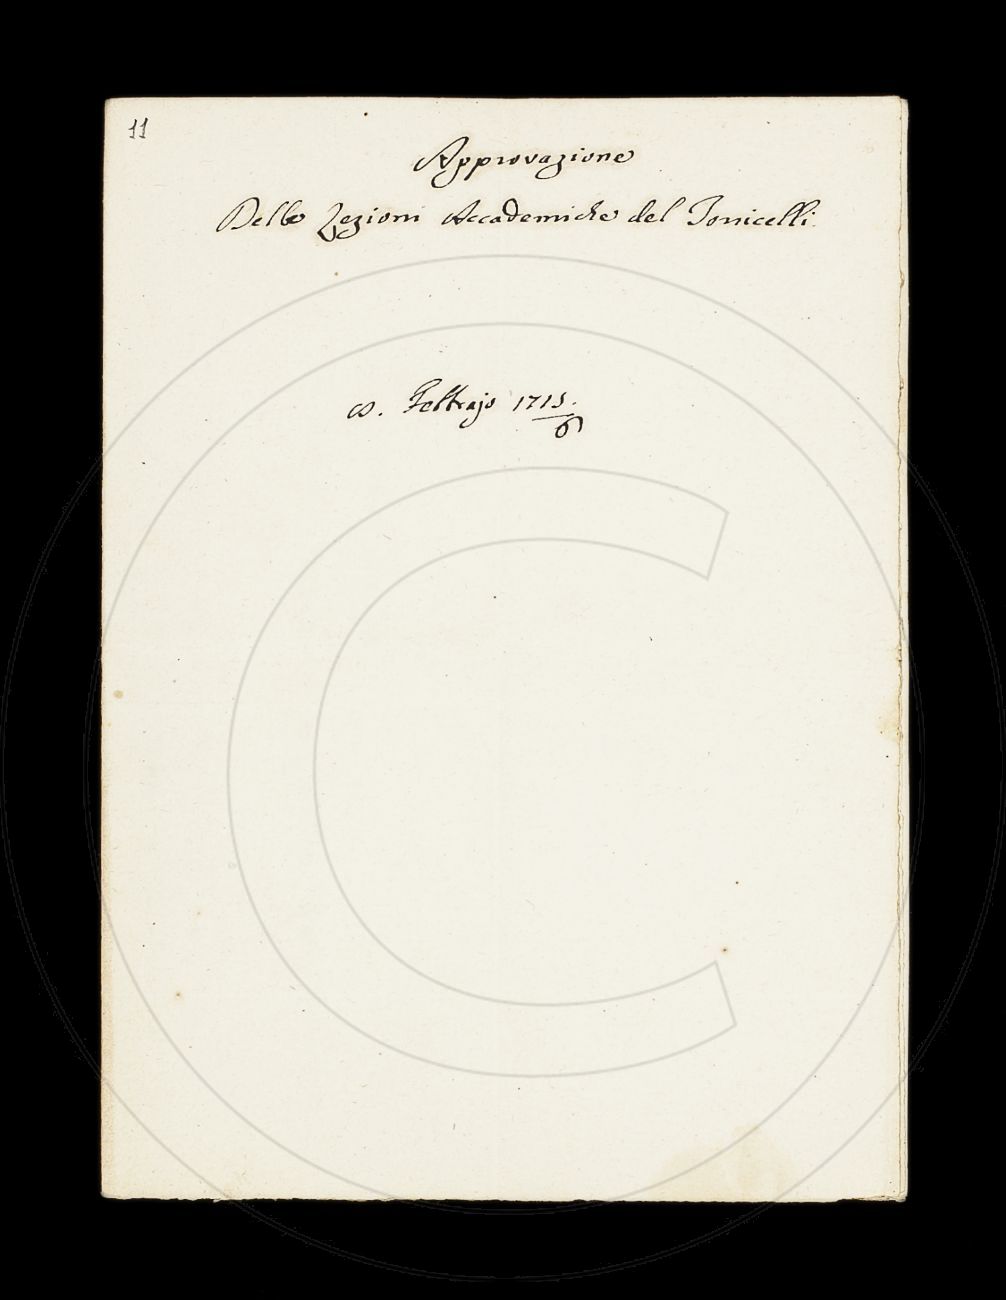 11
Approvazione
Delle Lezioni Accademiche del Tonicelli.
8. Febbrajo 1715.
6